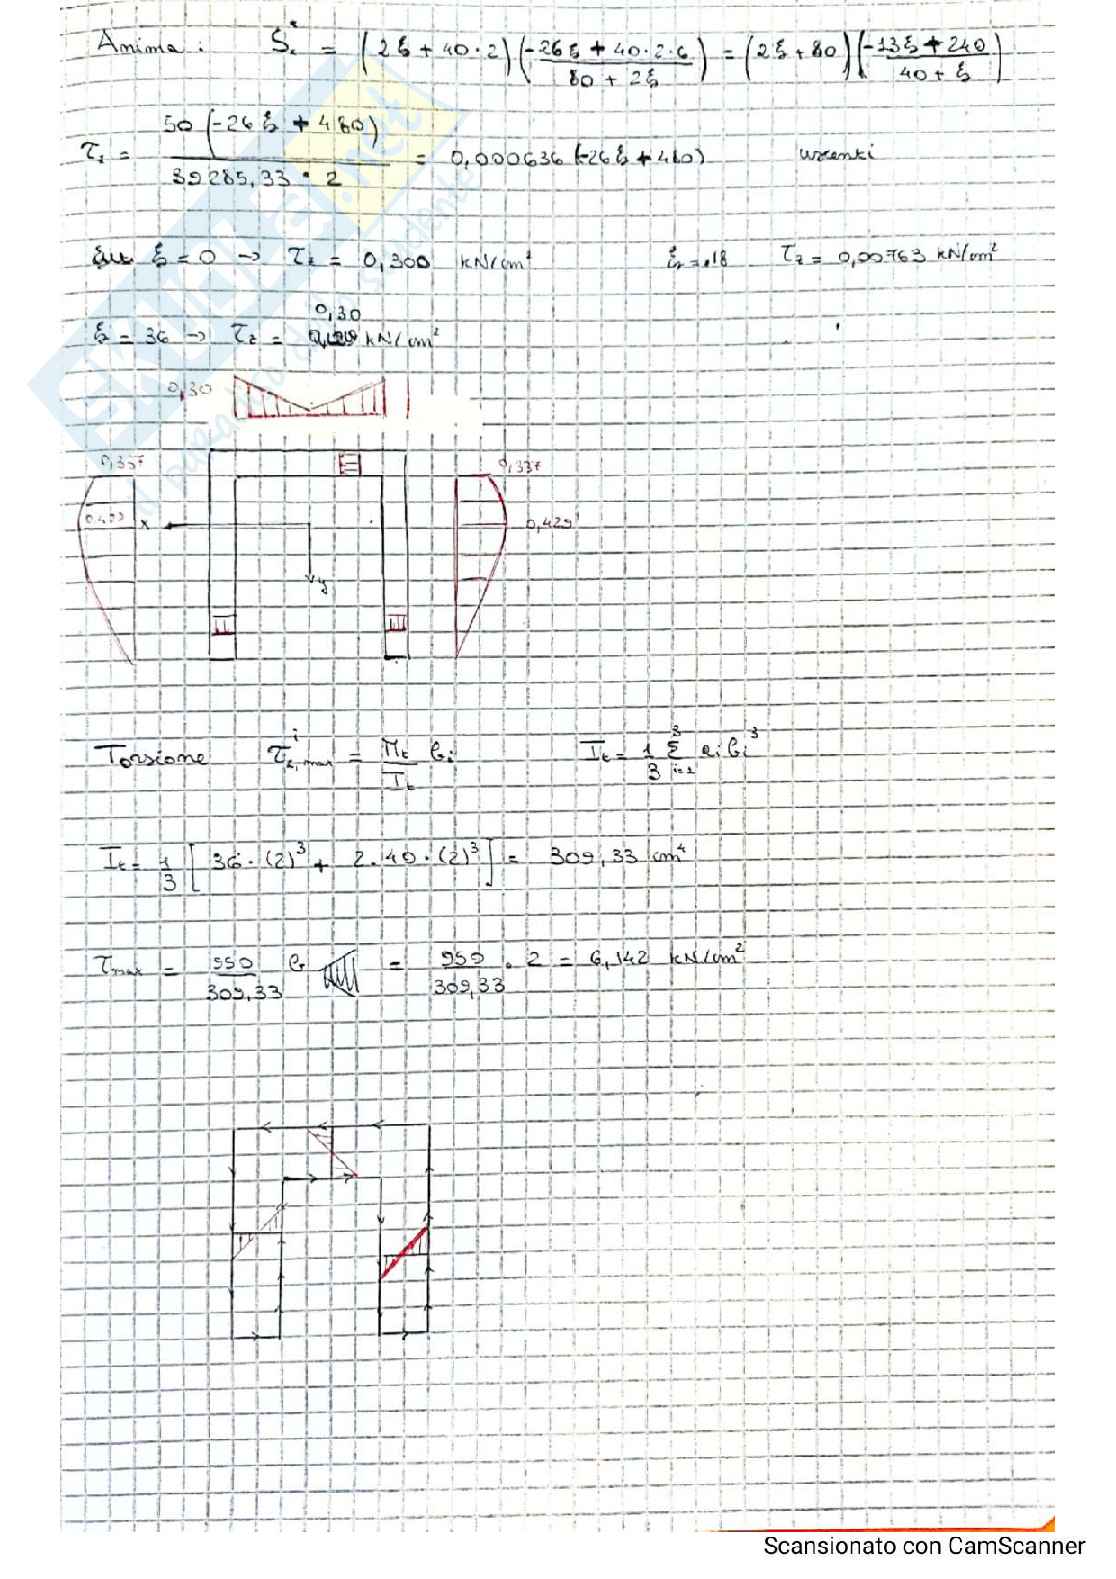 Anima : Sᵢ* = (2ξ + 40·2)(-26ξ + 40·2·6 / 80 + 2ξ) = (2ξ + 80)(-13ξ + 240 / 40 + ξ)
τ₁ = 50 (-26ξ + 480) / 39285,33 · 2 = 0,000636 (-26ξ + 480) uscenti
ξ = 0 → τ₂ = 0,300 kN/cm² ξ = 18 τ₂ = 0,00763 kN/cm²
0,30
ξ = 36 → τ₂ = kN/cm²
0,30
0,337 0,337
x 0,429
y
Torsione τⁱz,max = Mt/It bi It = 1/3 Σ³ᵢ₌₁ ai bi³
It = 1/3 [36·(2)³ + 2·40·(2)³] = 309,33 cm⁴
τmax = 950/309,33 b = 950/309,33 · 2 = 6,142 kN/cm²
Scansionato con CamScanner